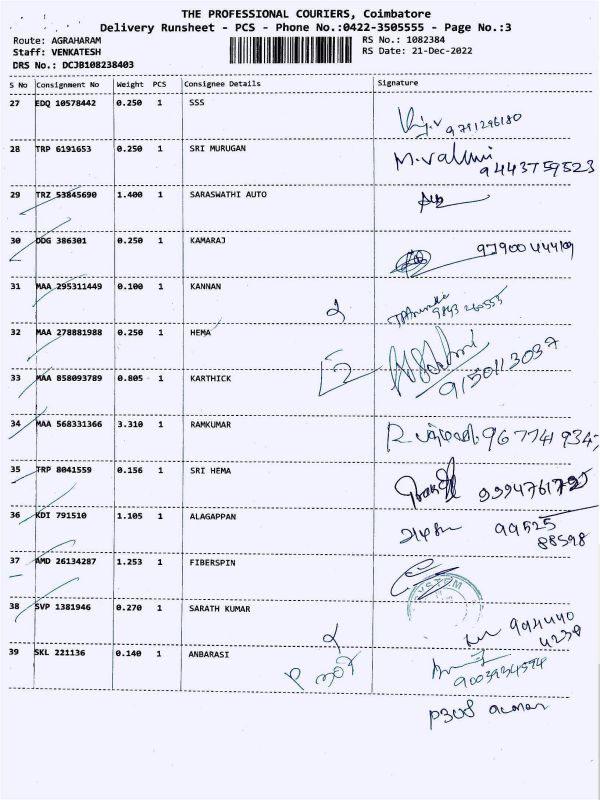 THE PROFESSIONAL COURIERS, Coimbatore
Delivery Runsheet - PCS - Phone No.:0422-3505555 - Page No.:3
Route: AGRAHARAM RS No.: 1082384
Staff: VENKATESH RS Date: 21-Dec-2022
DRS No.: DCJB108238403
S No Consignment No Weight PCS Consignee Details Signature
27 EDQ 10578442 0.250 1 SSS
9791296180
28 TRP 6191653 0.250 1 SRI MURUGAN
9443759523
29 TRZ 53845690 1.400 1 SARASWATHI AUTO
30 DDG 386301 0.250 1 KAMARAJ
31 MAA 295311449 0.100 1 KANNAN
32 MAA 278881988 0.250 1 HEMA
9150113037
33 MAA 858093789 0.805 1 KARTHICK
34 MAA 568331366 3.310 1 RAMKUMAR
35 TRP 8041559 0.156 1 SRI HEMA
36 KDI 791510 1.105 1 ALAGAPPAN
99525
88598
37 AMD 26134287 1.253 1 FIBERSPIN
38 SVP 1381946 0.270 1 SARATH KUMAR
39 SKL 221136 0.140 1 ANBARASI